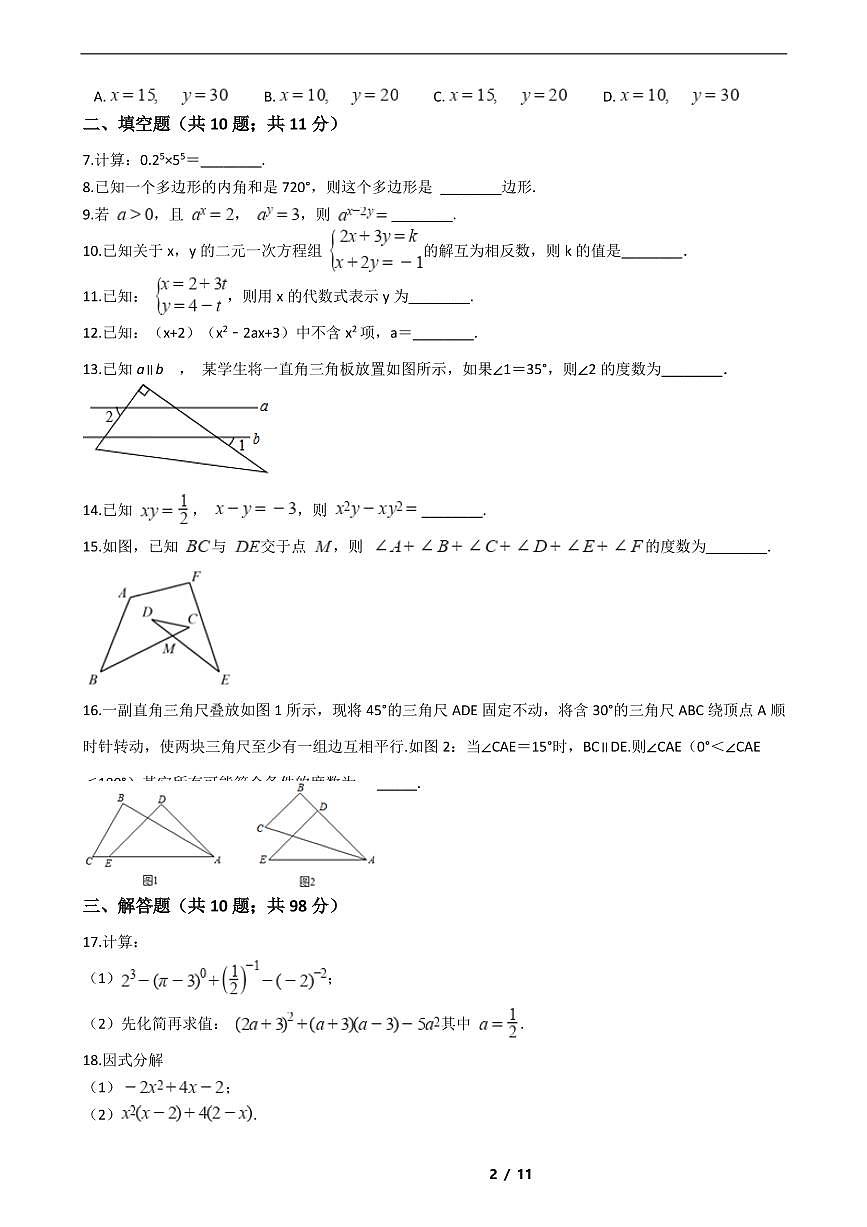 A. x = 15, y = 30 B. x = 10, y = 20 C. x = 15, y = 20 D. x = 10, y = 30
二、填空题（共 10 题；共 11 分）
7.计算：0.2⁵×5⁵=________.
8.已知一个多边形的内角和是 720°，则这个多边形是 ________边形.
9.若 a > 0，且 aˣ = 2， aʸ = 3，则 aˣ⁻²ʸ = ________.
10.已知关于 x，y 的二元一次方程组 { 2x + 3y = k x + 2y = − 1 的解互为相反数，则 k 的值是________.
11.已知： { x = 2 + 3t y = 4 − t ，则用 x 的代数式表示 y 为________.
12.已知：（x+2）（x²﹣2ax+3）中不含 x² 项，a＝________.
13.已知 a∥b ， 某学生将一直角三角板放置如图所示，如果∠1＝35°，则∠2 的度数为________.
2 a
1 b
14.已知 xy = 1/2， x − y = − 3，则 x²y − xy² = ________.
15.如图，已知 BC 与 DE 交于点 M，则 ∠A + ∠B + ∠C + ∠D + ∠E + ∠F 的度数为________.
F
A
D C
M
B E
16.一副直角三角尺叠放如图 1 所示，现将 45°的三角尺 ADE 固定不动，将含 30°的三角尺 ABC 绕顶点 A 顺
时针转动，使两块三角尺至少有一组边互相平行.如图 2：当∠CAE＝15°时，BC∥DE.则∠CAE（0°＜∠CAE
＜180°）其它所有可能符合条件的度数为________.
B D B D
C
C E A E A
图1 图2
三、解答题（共 10 题；共 98 分）
17.计算：
（1）2³ − (π − 3)⁰ + (1/2)⁻¹ − (− 2)⁻²；
（2）先化简再求值： (2a + 3)² + (a + 3)(a − 3) − 5a² 其中 a = 1/2.
18.因式分解
（1） − 2x² + 4x − 2；
（2）x²(x − 2) + 4(2 − x).
2 / 11